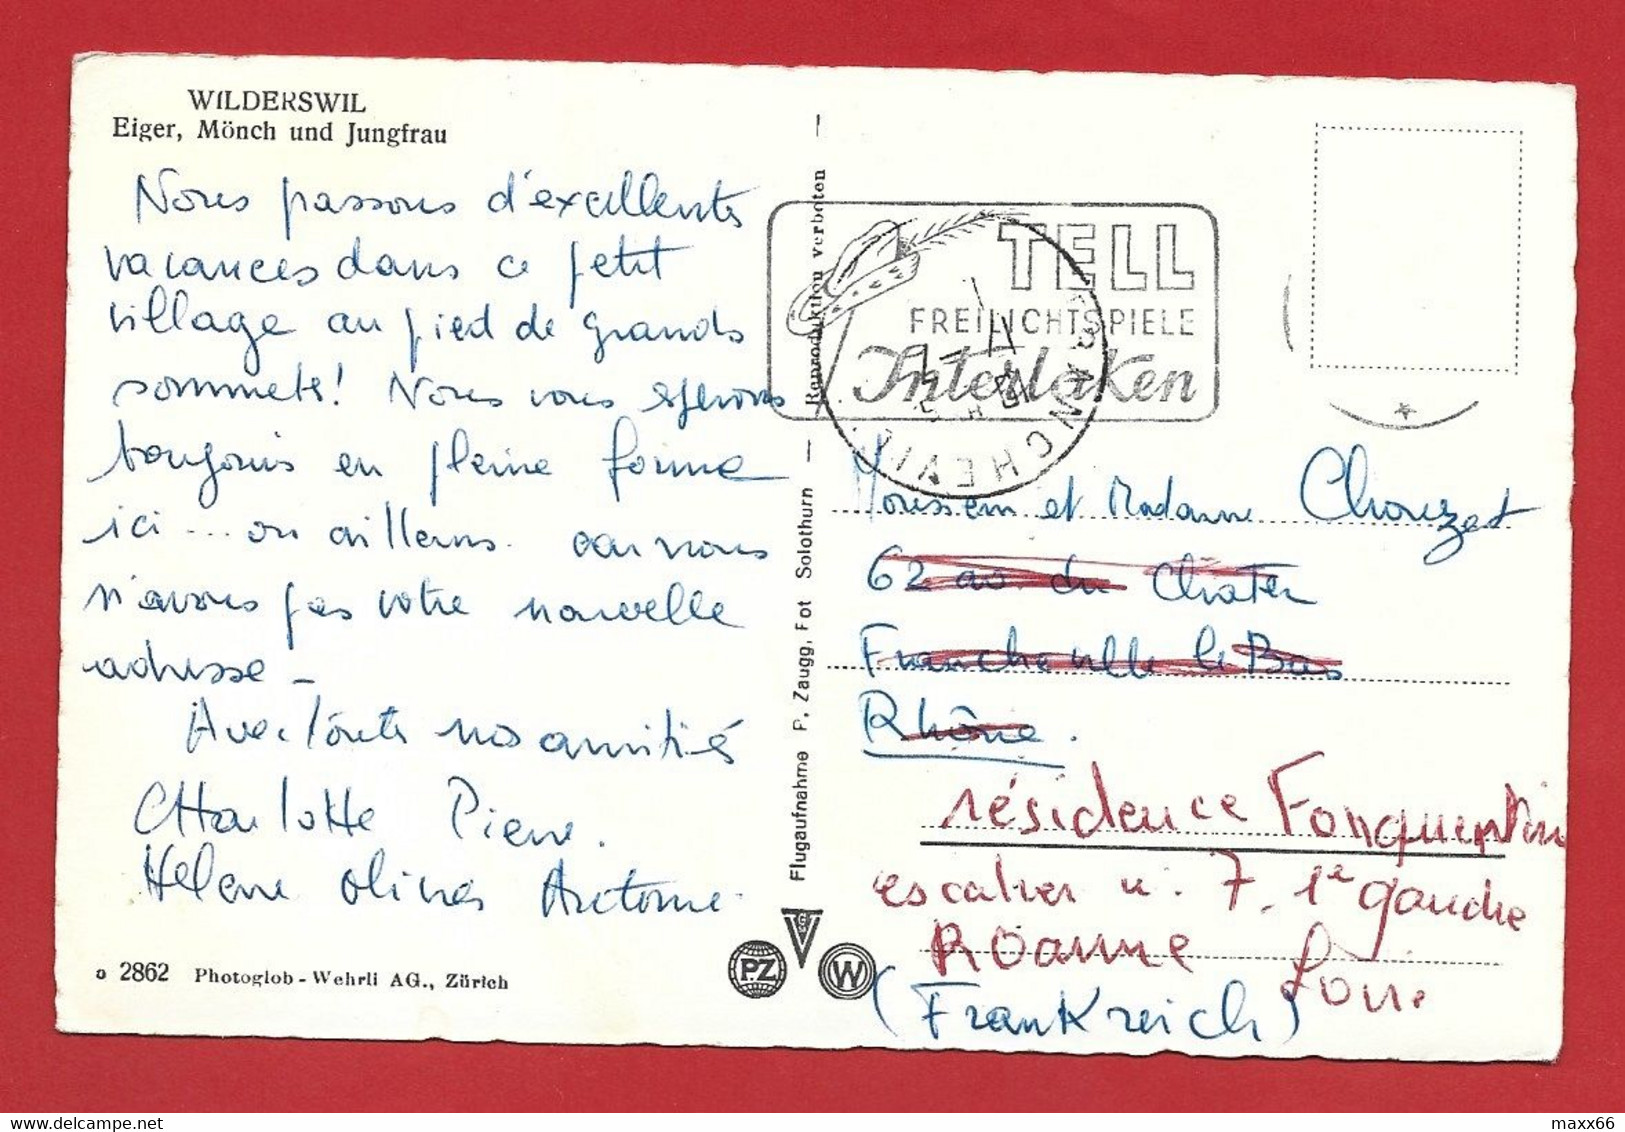 WILDERSWIL
Eiger, Mönch und Jungfrau
Nous passons d'excellentes
vacances dans ce petit
village au pied de grands
sommets! Nous vous espérons
toujours en pleine forme
ici ... ou ailleurs car nous
n'avons pas votre nouvelle
adresse -
Avec toutes nos amitiés
Charlotte Pierre.
Hélène Olivier Antoine.
o 2862 Photoglob-Wehrli AG., Zürich
Reproduktion verboten
Flugaufnahme P. Zaugg, Fot Solothurn
PZ
W
TELL
FREILICHTSPIELE
Interlaken
FRANCHEVILLE
Monsieur et Madame Chouzet
62 av. du Chater
Francheville le Bas
Rhône.
résidence Fonquentin
escalier n. 7. 1e gauche
ROanne Loire
(Frankreich)
maxx66